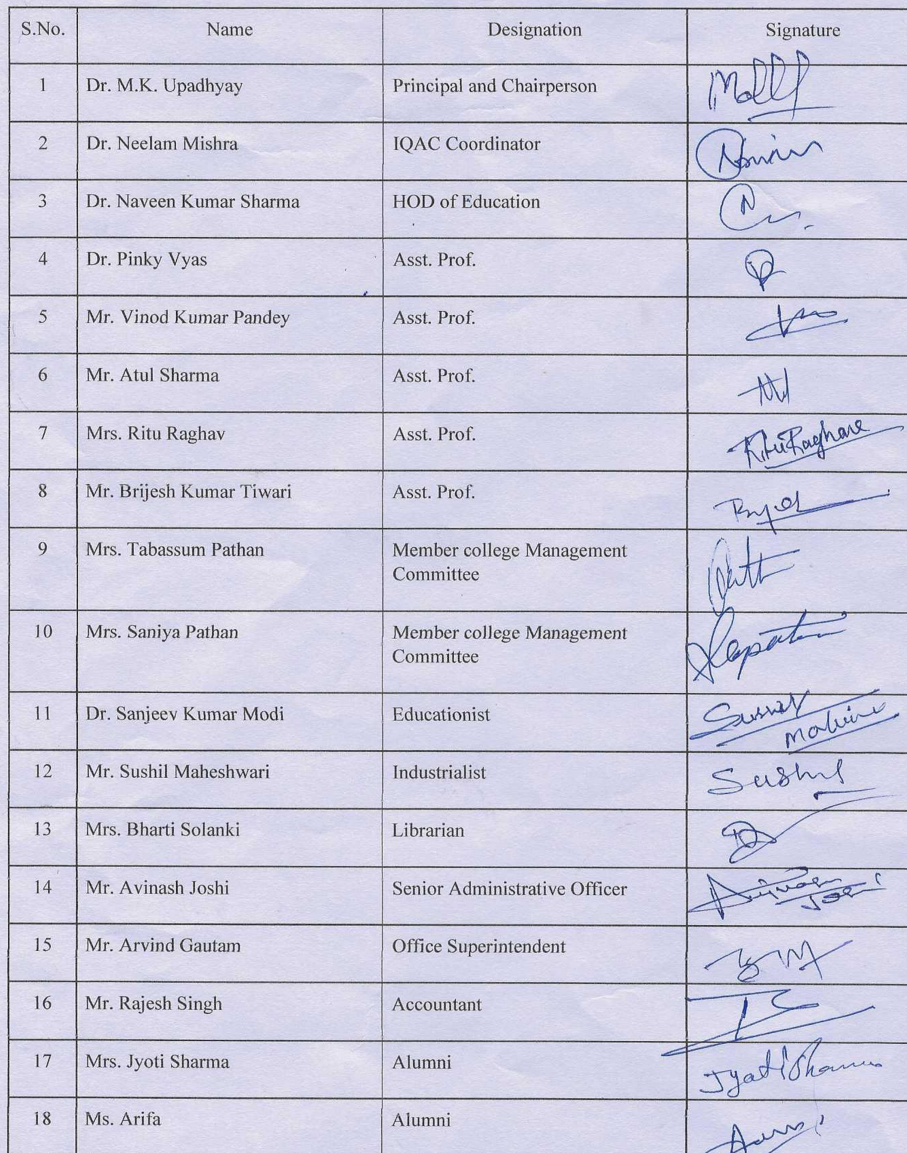 S.No. Name Designation Signature
1 Dr. M.K. Upadhyay Principal and Chairperson
2 Dr. Neelam Mishra IQAC Coordinator
3 Dr. Naveen Kumar Sharma HOD of Education
4 Dr. Pinky Vyas Asst. Prof.
5 Mr. Vinod Kumar Pandey Asst. Prof.
6 Mr. Atul Sharma Asst. Prof.
7 Mrs. Ritu Raghav Asst. Prof.
8 Mr. Brijesh Kumar Tiwari Asst. Prof.
9 Mrs. Tabassum Pathan Member college Management
Committee
10 Mrs. Saniya Pathan Member college Management
Committee
11 Dr. Sanjeev Kumar Modi Educationist
12 Mr. Sushil Maheshwari Industrialist Sushil
13 Mrs. Bharti Solanki Librarian
14 Mr. Avinash Joshi Senior Administrative Officer
15 Mr. Arvind Gautam Office Superintendent
16 Mr. Rajesh Singh Accountant
17 Mrs. Jyoti Sharma Alumni
18 Ms. Arifa Alumni